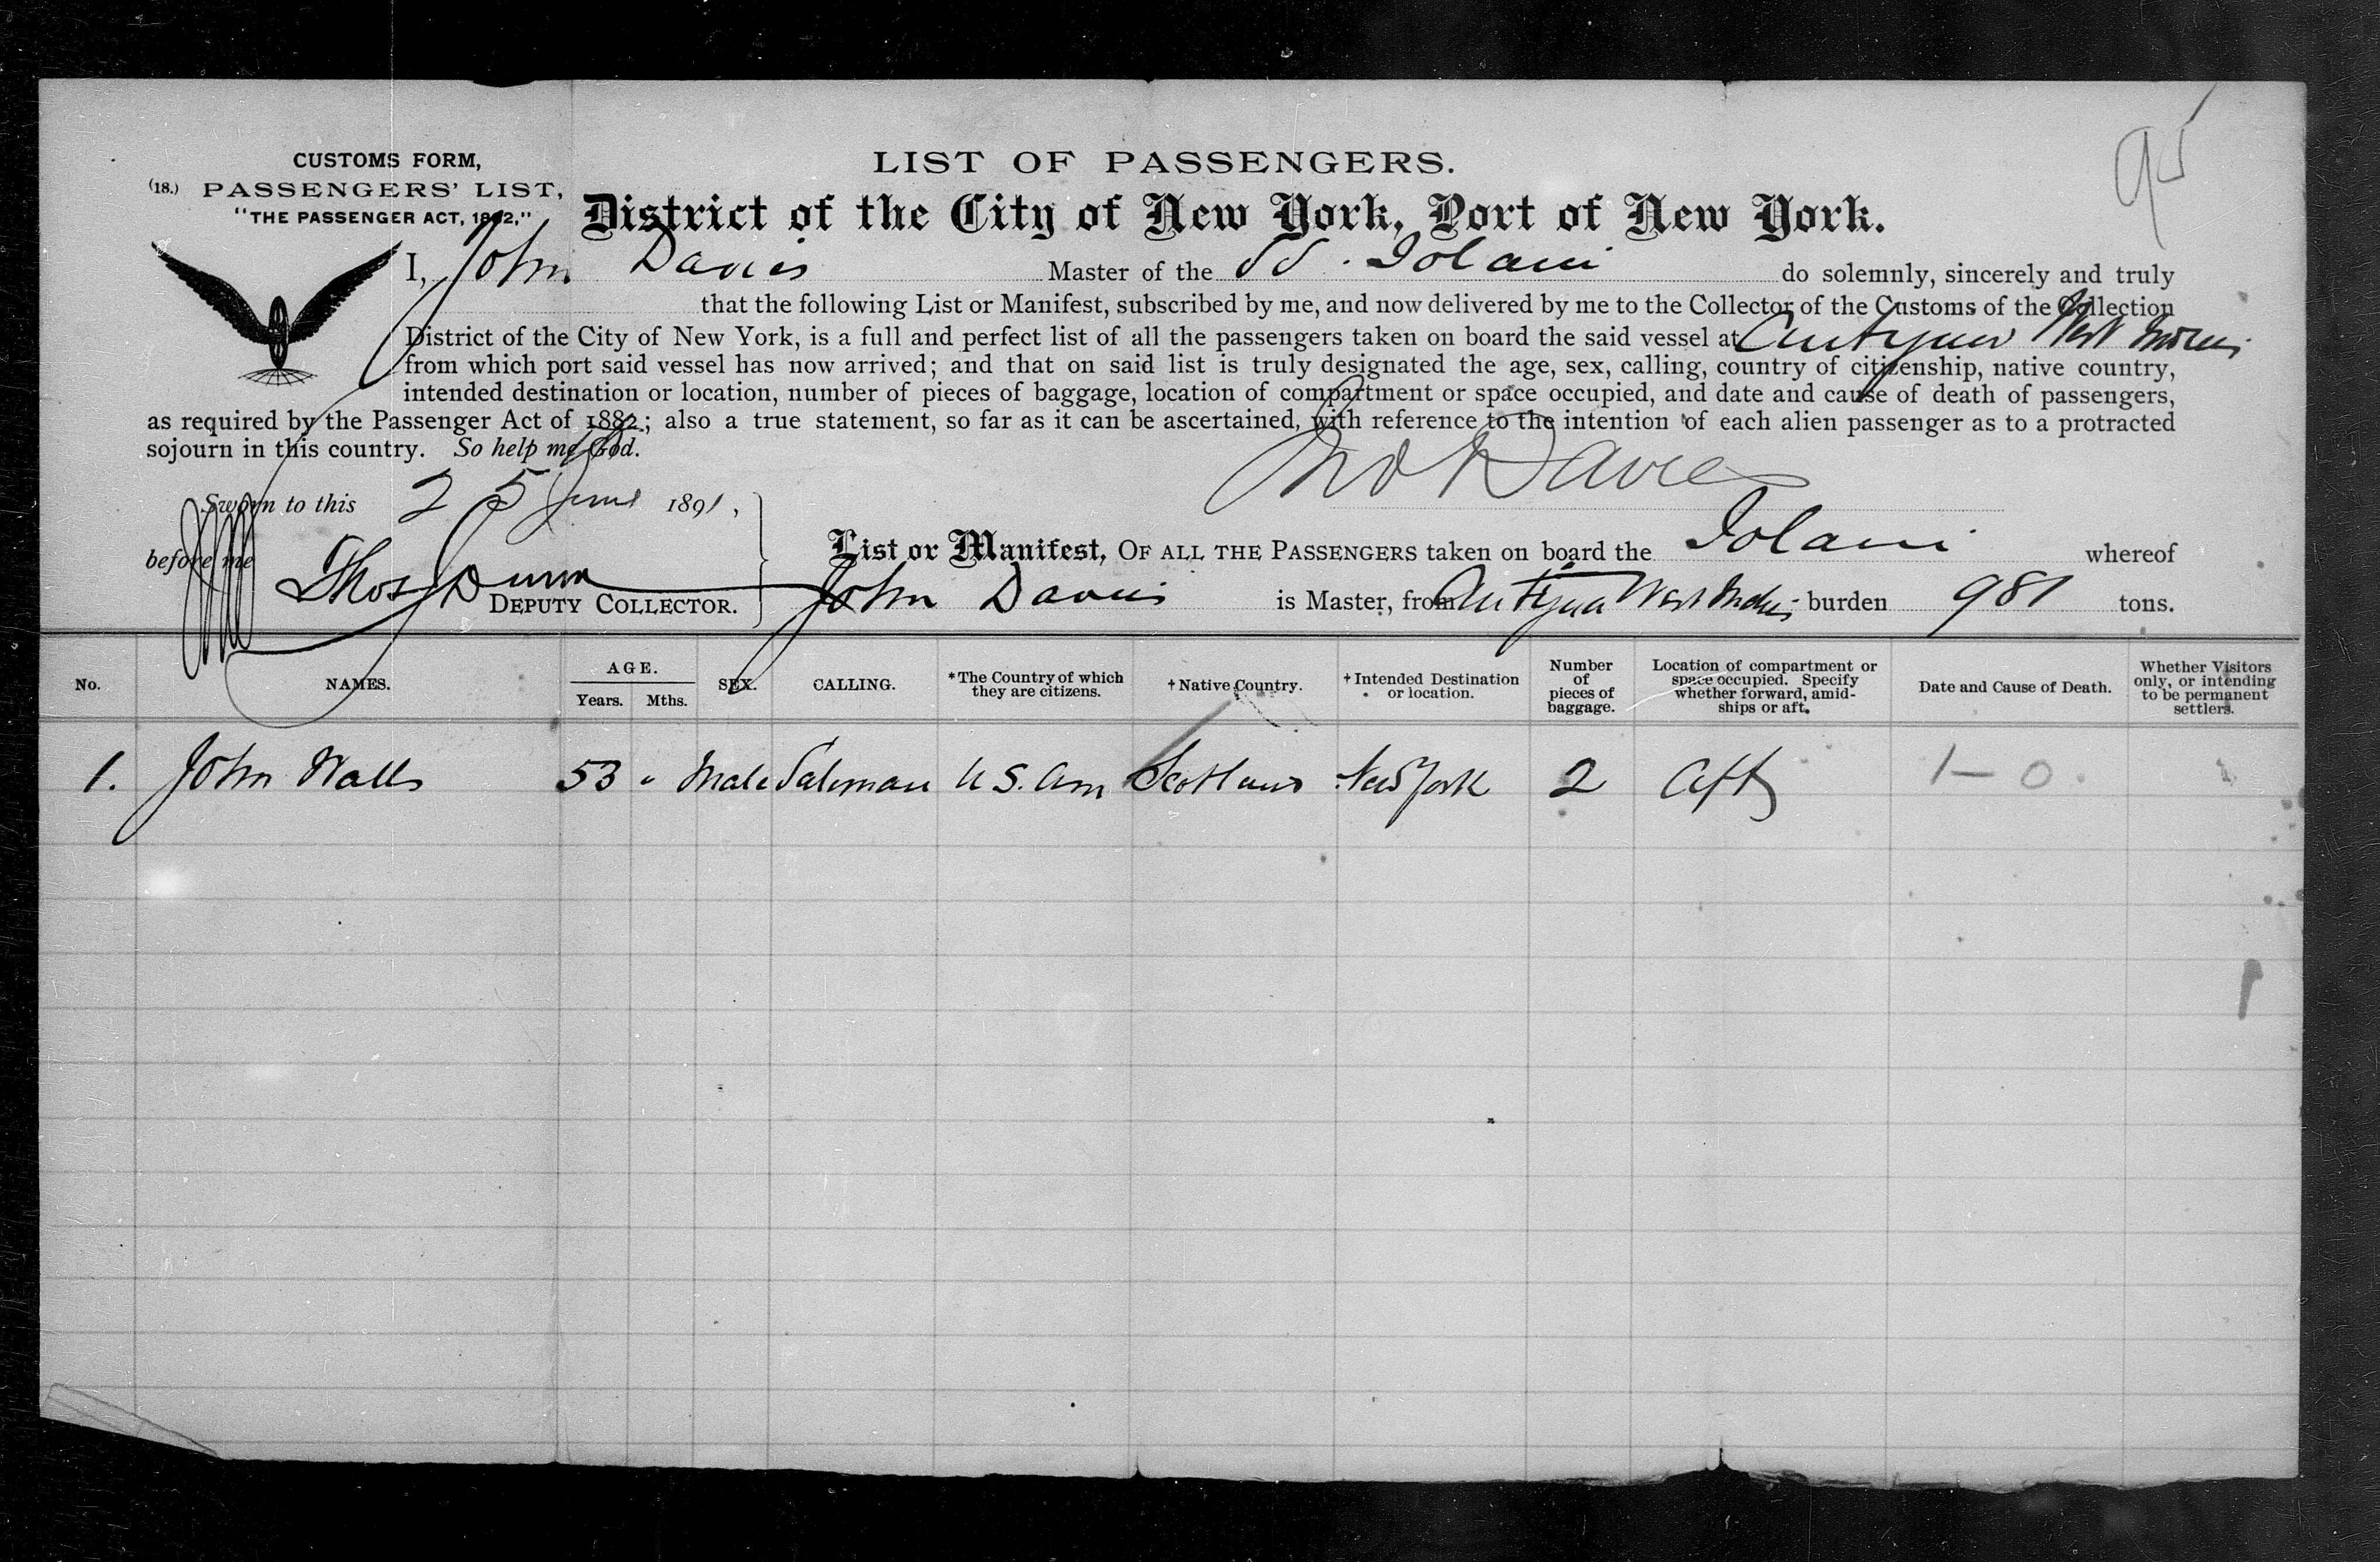 95
CUSTOMS FORM,
(18.) PASSENGERS' LIST,
"THE PASSENGER ACT, 1882,"
LIST OF PASSENGERS.
District of the City of New York, Port of New York.
I, John Davies Master of the SS. Iolani do solemnly, sincerely and truly
that the following List or Manifest, subscribed by me, and now delivered by me to the Collector of the Customs of the Collection
District of the City of New York, is a full and perfect list of all the passengers taken on board the said vessel at Antigua West Indies
from which port said vessel has now arrived; and that on said list is truly designated the age, sex, calling, country of citizenship, native country,
intended destination or location, number of pieces of baggage, location of compartment or space occupied, and date and cause of death of passengers,
as required by the Passenger Act of 1882; also a true statement, so far as it can be ascertained, with reference to the intention of each alien passenger as to a protracted
sojourn in this country. So help me God.
Jno Davies
Sworn to this 25 June 1891,
before me
Thos Dunn
DEPUTY COLLECTOR.
List or Manifest, OF ALL THE PASSENGERS taken on board the Iolani whereof
John Davies is Master, from Antigua West Indies burden 981 tons.
No. NAMES. AGE. Years. Mths. SEX. CALLING. *The Country of which they are citizens. †Native Country. †Intended Destination or location. Number of pieces of baggage. Location of compartment or space occupied. Specify whether forward, amidships or aft. Date and Cause of Death. Whether Visitors only, or intending to be permanent settlers.
1. John Walls 53 " Male Salesman U S. Am Scotland New York 2 Aft 1–0